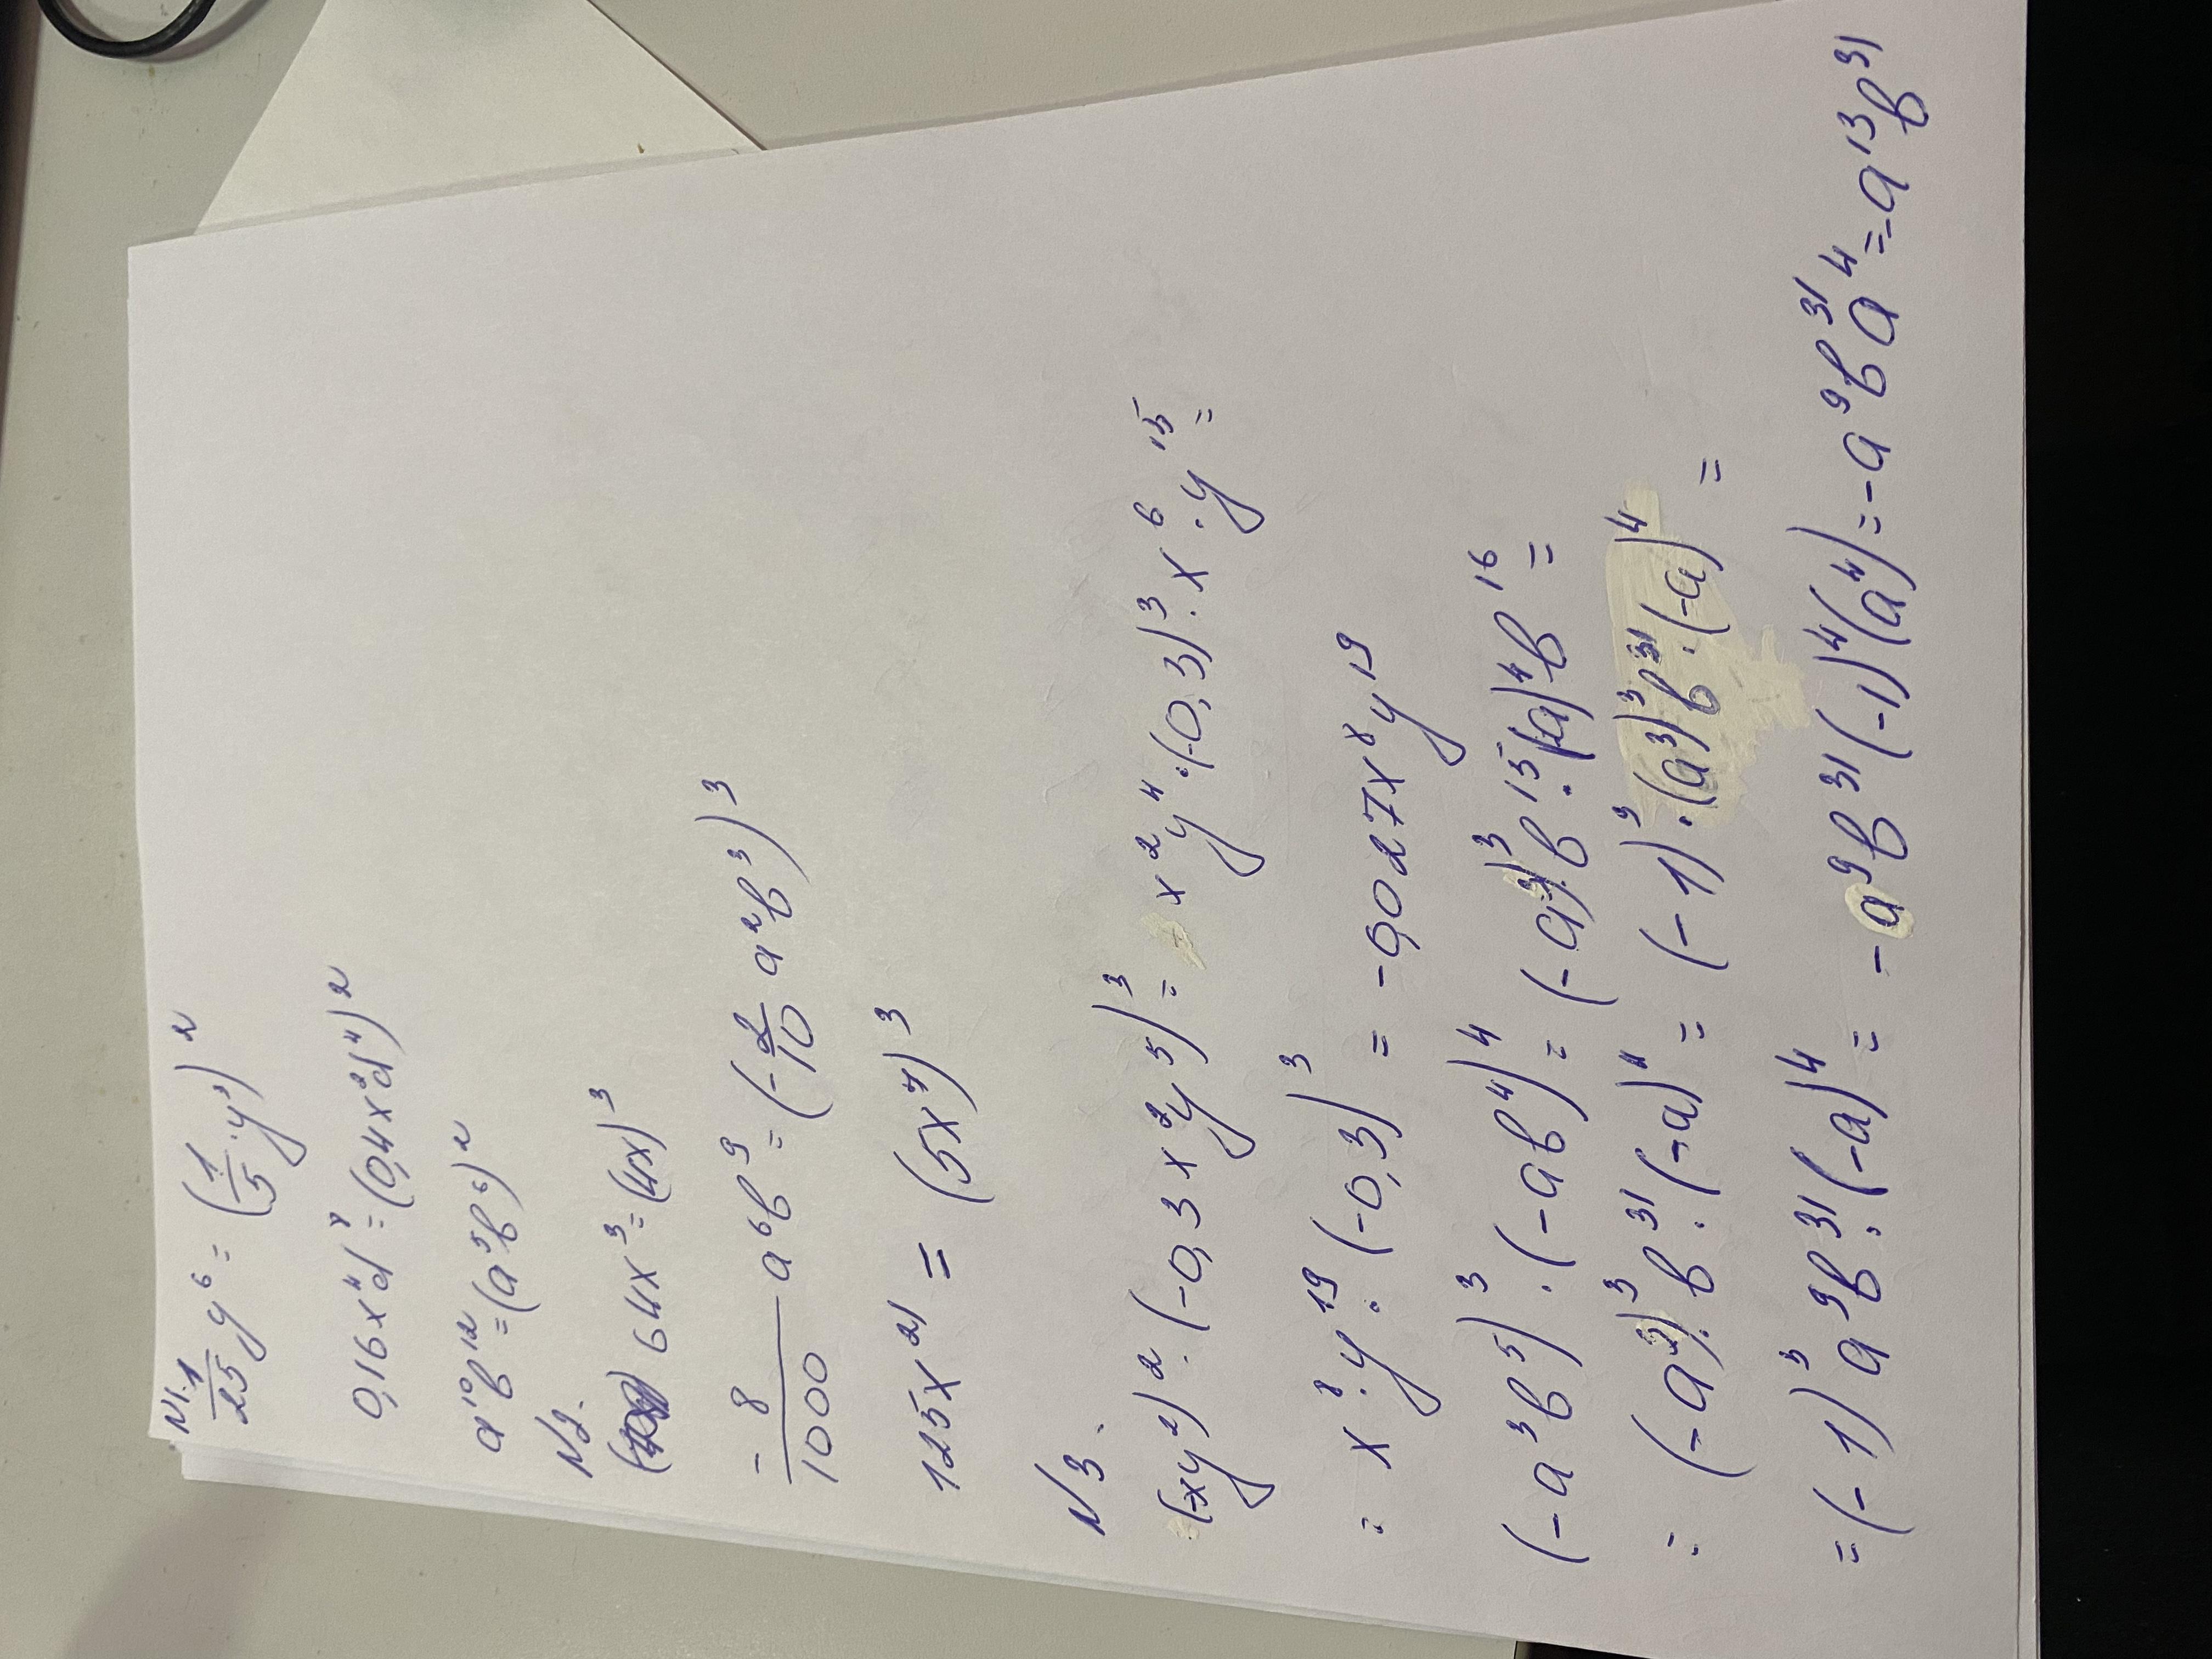 N1.
1/25 y⁶ = (1/5 · y³)²
0,16x⁴d⁸ = (0,4x²d⁴)²
a¹⁰b¹² = (a⁵b⁶)²
N2.
64x³ = (4x)³
- 8/1000 a⁶b⁹ = (- 2/10 a²b³)³
125x²¹ = (5x⁷)³
N3.
(-xy²)² · (-0,3x²y⁵)³ = x²y⁴ · (-0,3)³ · x⁶ · y¹⁵ =
= x⁸ · y¹⁹ · (-0,3)³ = -0,027x⁸y¹⁹
(-a³b⁵)³ · (-ab⁴)⁴ = (-a³)³ b¹⁵ · (-a)⁴ b¹⁶ =
= (-a³)³ · b³¹ · (-a)⁴ = (-1)³ · (a³)³ b³¹ · (-a)⁴ =
= (-1)³ a⁹b³¹ · (-a)⁴ = -a⁹b³¹(-1)⁴(a⁴) = -a⁹b³¹a⁴ = -a¹³b³¹